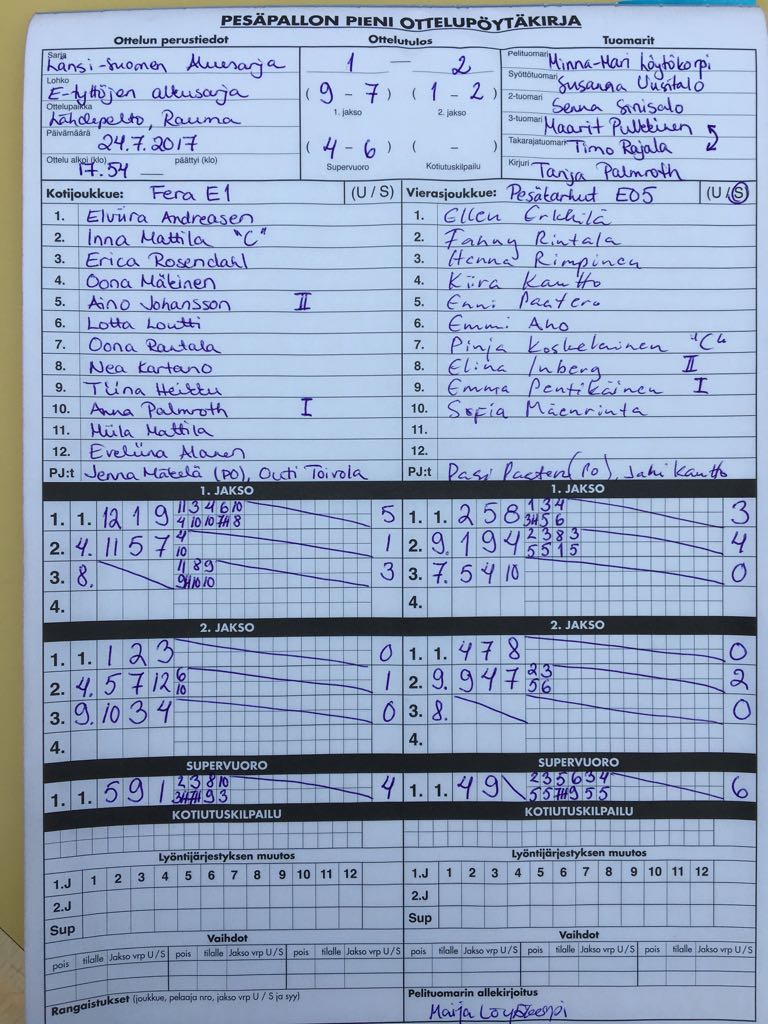 PESÄPALLON PIENI OTTELUPÖYTÄKIRJA
Ottelun perustiedot Ottelutulos Tuomarit
Sarja Länsi-Suomen Aluesarja
Lohko E-tyttöjen alkusarja
Ottelupaikka Lähdepelto, Rauma
Päivämäärä 24.7.2017
Ottelu alkoi (klo) 17.54 päättyi (klo)
1 — 2
( 9 - 7 ) ( 1 - 2 )
1. jakso 2. jakso
( 4 - 6 ) ( - )
Supervuoro Kotiutuskilpailu
Pelituomari Minna-Mari Löytökorpi
Syöttötuomari Susanna Uusitalo
2-tuomari Senna Sinisalo
3-tuomari Maarit Pulkkinen
Takarajatuomari Timo Rajala
Kirjuri Tanja Palmroth
Kotijoukkue: Fera E1 (U / S)
1. Elviira Andreasen
2. Inna Mattila "C"
3. Erica Rosendahl
4. Oona Mäkinen
5. Aino Johansson II
6. Lotta Loutti
7. Oona Rautala
8. Nea Kartano
9. Tiina Heikku
10. Anna Palmroth I
11. Miila Mattila
12. Eveliina Alanen
PJ:t Jenna Mäkelä (PO), Outi Toivola
Vierasjoukkue: Pesäkarhut E05 (U / S)
1. Ellen Erkkilä
2. Fanny Rintala
3. Henna Rimpinen
4. Kiira Kautto
5. Enni Paatero
6. Emmi Aho
7. Pinja Koskelainen "C"
8. Elina Inberg II
9. Emma Pentikäinen I
10. Sofia Mäenrinta
11.
12.
PJ:t Pasi Paatero (PO), Jani Kautto
1. JAKSO
1. 1. 12 1 9 11 3 4 6 10 5
4 10 10 7 8
2. 4. 11 5 7 4 1
10
3. 8. 11 8 9 3
9 10 10
4.
2. JAKSO
1. 1. 1 2 3 0
2. 4. 5 7 12 6 1
10
3. 9. 10 3 4 0
4.
SUPERVUORO
1. 1. 5 9 1 2 3 8 10 4
9 3
KOTIUTUSKILPAILU
Lyöntijärjestyksen muutos
1.J 1 2 3 4 5 6 7 8 9 10 11 12
2.J
Sup
Vaihdot
pois tilalle Jakso vrp U / S pois tilalle Jakso vrp U / S pois tilalle Jakso vrp U / S
Rangaistukset (joukkue, pelaaja nro, jakso vrp U / S ja syy)
1. JAKSO
1. 1. 2 5 8 1 3 4 3
3 5 6
2. 9. 1 9 4 2 3 8 3 4
5 5 1 5
3. 7. 5 4 10 0
4.
2. JAKSO
1. 1. 4 7 8 0
2. 9. 9 4 7 2 3 2
5 6
3. 8. 0
4.
SUPERVUORO
1. 1. 4 9 2 3 5 6 3 4 6
5 5 9 5 5
KOTIUTUSKILPAILU
Lyöntijärjestyksen muutos
1.J 1 2 3 4 5 6 7 8 9 10 11 12
2.J
Sup
Vaihdot
pois tilalle Jakso vrp U / S pois tilalle Jakso vrp U / S pois tilalle Jakso vrp U / S
Pelituomarin allekirjoitus